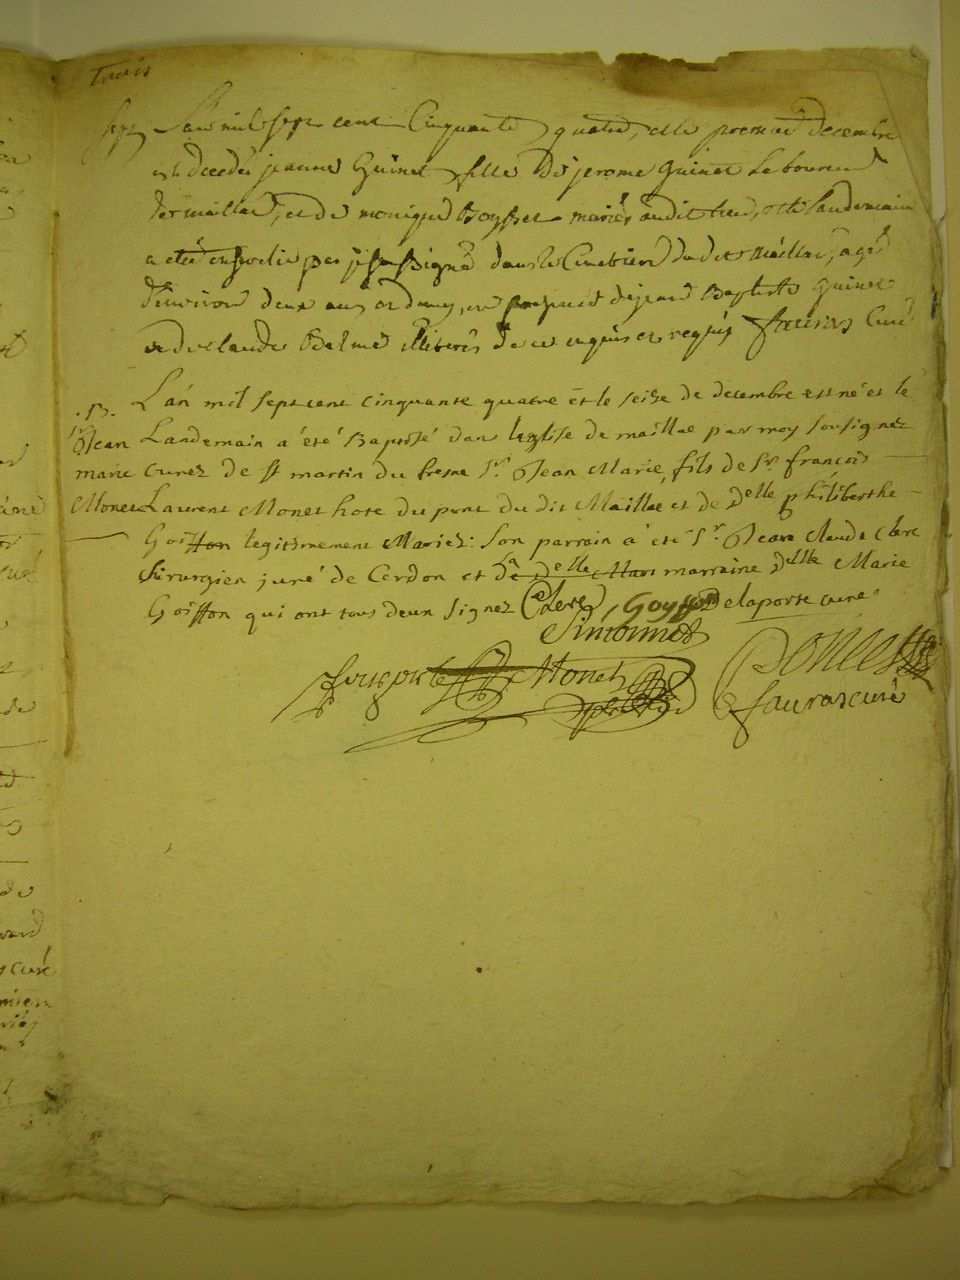 Trois
Sep. L'an mil sept cent Cinquante quatre, et le premier decembre
est decedée jeanne Guinet fille De jerome Guinet Laboureur
de maillat, et de monique mariés audit lieu, et le landemain
a eté ensevelie par je soussigné dans le Cimetiere du dit Maillat, agée
d'environ deux ans et demy, en presence de jean Baptiste Guinet
et de claude illiterés de ce enquis et requis favras Curé
.B. L'an mil sept cent cinquante quatre et le seize de decembre est né et le
Sr Jean Landemain a été Baptisé dans leglise de maillat par moy soussignez
marie curez de st martin du fresne Sr. Jean Marie, fils de Sr. françois
Monet Laurent Monet hote du pont du dit Maillat et de Delle philiberthe
Goiffon legitimement Mariez: Son parrain a été Sr. Jean Claude Clerc
chirurgien juré de Cerdon et sa marraine Delle Marie
Goiffon qui ont tous deux signez Clerc, Goyffon delaporte curé
Simonnet
Monet Poncet
favras curé